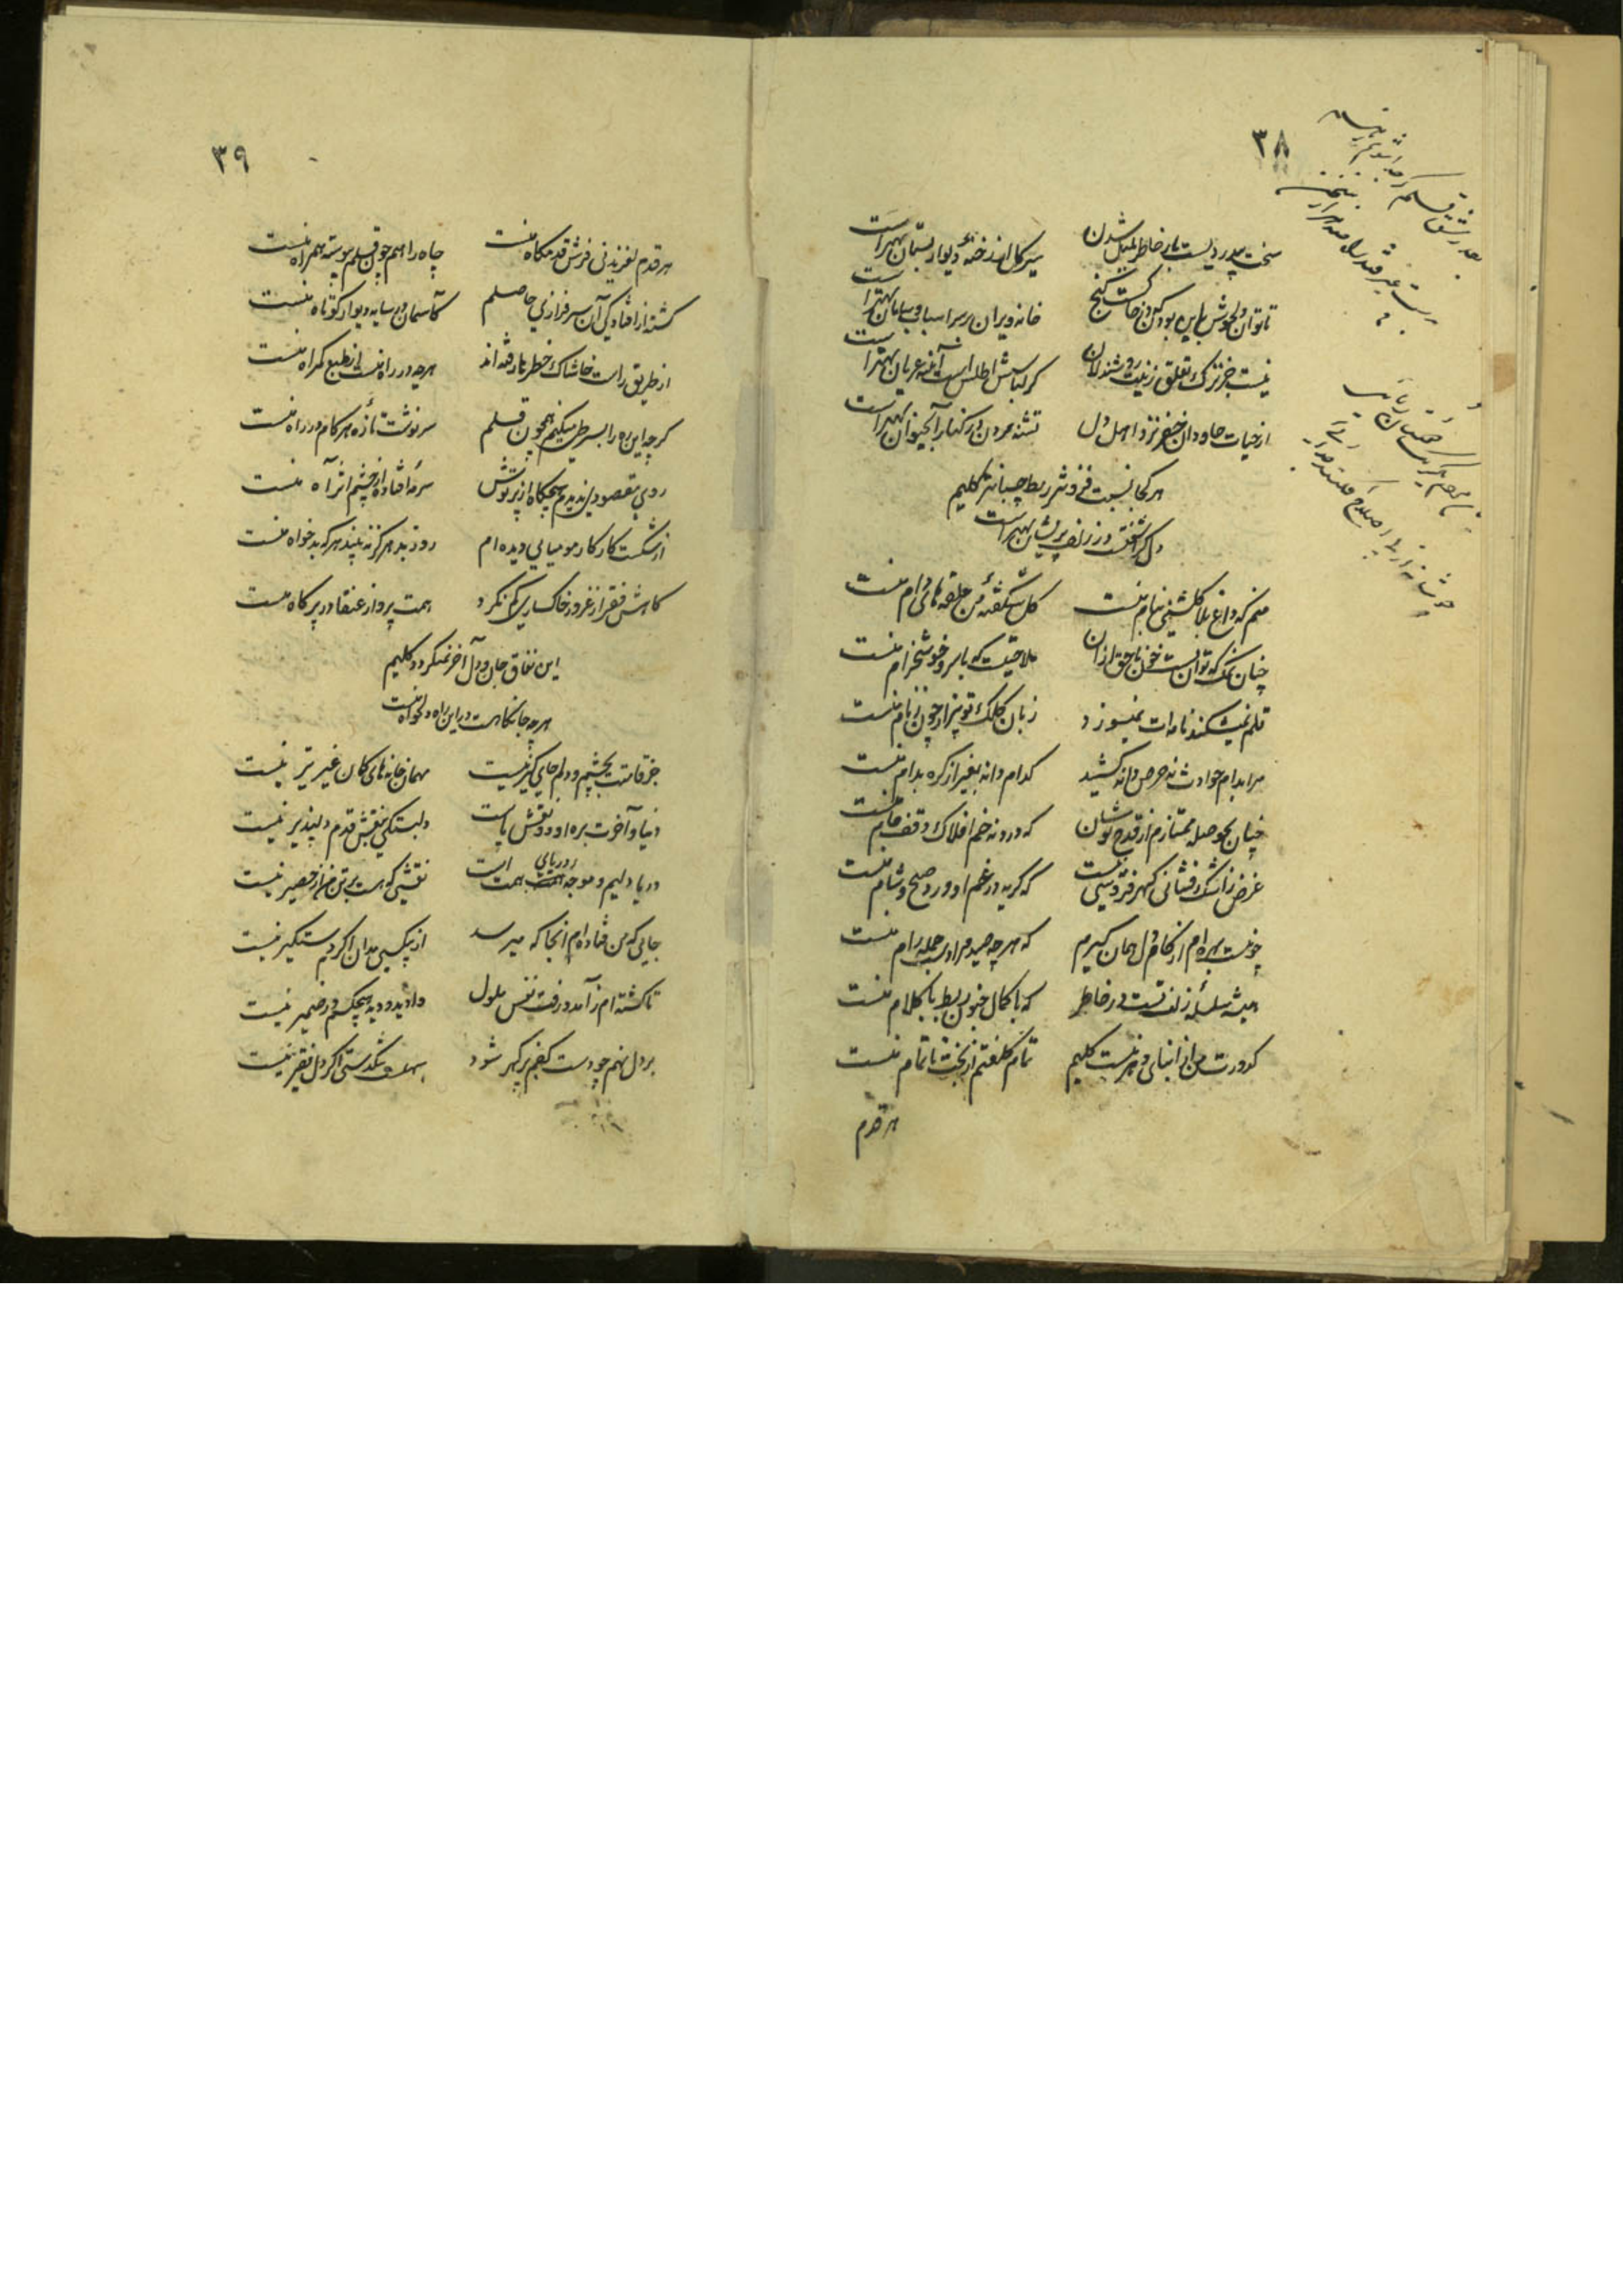 ۳۸
سخت بیدردیست بار خاطر بلبل شدن
سیر گل از رخنهٔ دیوار بستان بهتر است
تا توان دلخوش باین بودن که در خاکست گنج
خانه ویران بر سر اسباب و سامان بهتر است
نیست جز ترک تعلق زینت روشندلان
گر لباسش اطلس است آئینه عریان بهتر است
از حیات جاودان خضر نزد اهل دل
تشنه مردن در کنار آب حیوان بهتر است
هر کجا نسبت فزونتر ربط چسبانتر کلیم
دل گر آشفتست در زلف پریشان بهتر است
منم که داغ بلا گلشنی بنام منست
گل شکفتهٔ من حلقه های دام منست
چنان نمک که توان بست خون ناحق ازان
ملاحتیست که با سرو خوشخرام منست
قلم نمیشکند نامه ات نمیسوزد
زبان کلک تو بیزار چون ز نام منست
مرا بدام حوادث نه حرص دانه کشید
کدام دانه بغیر از گره بدام منست
چنان بحوصله ممتازم از قدح نوشان
که درد نه خم افلاک وقف جام منست
غرض ز اشک فشانی گهر فروشی نیست
که گریه در غم او ورد صبح و شام منست
که هر چه صید مراد است جمله رام منست
همیشه سلسلهٔ زلف تست در خاطر
که با کمال جنون ربط با کلام منست
کدورت من از ابنای دهر نیست کلیم
تمام کلفتم از بخت ناتمام منست
هر قدم
۳۹
هر قدم لغزیدنی فرش قدمگاه منست
چاه راهم چون قلم پیوسته همراه منست
کشته از افتادگی آن سرفرازی حاصلم
کاسمان در سایه دیوار کوتاه منست
از طریق راست خاشاک خطر نا رفته اند
هر چه در راه منست از طبع گمراه منست
گر چه این ره را بسر طی میکنم همچون قلم
سرنوشت تازه هر گام در راه منست
روی مقصودی ندیدم هیچگاه از پرتوش
سرمه افتاده از چشم اثر آه منست
از شکست کار کار مومیایی دیده ام
روز بد هرگز نه بیند هر که بدخواه منست
کاهش فقر از غرور خاکساری کم نکرد
همت پرواز عنقا در پر کاه منست
این نفاق جان و دل آخر نمیگردد کلیم
هر چه جانکاهست در این راه دلخواه منست
جز قامتت بچشم و دلم جایگیر نیست
مهمان خانه های کمان غیر تیر نیست
دنیا و آخرت بره او دو نقش پاست
دلبستگی بنقش قدم دلپذیر نیست
دریا دلیم و موجه دریای همت است
نقشی که هست بر تن من از حصیر نیست
جایی که من فتاده ام آنجا که میرسد
از بیکسی مدان اگرم دستگیر نیست
تا گشته ام ز آمد و رفت نفس ملول
وا دید و دید هیچکسم در ضمیر نیست
بر دل نهم چو دست کفم پر گهر شود
سهلست تنگدستی اگر دل فقیر نیست